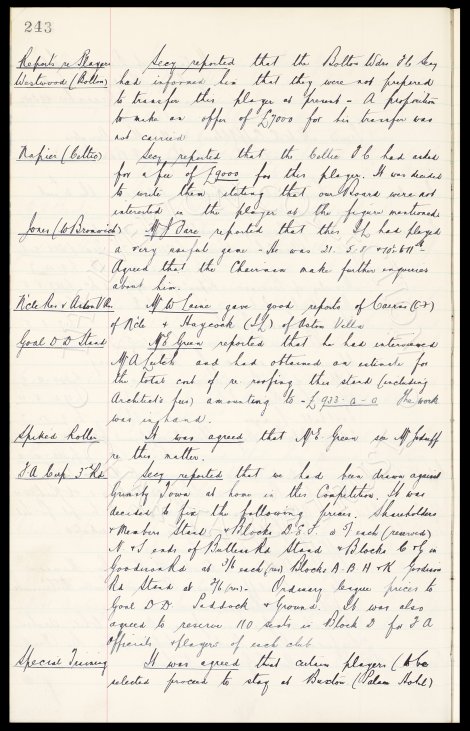 243
Reports re Players Secy reported that the Bolton Wdrs F C Secy
Westwood (Bolton) had informed him that they were not prepared
to transfer this player at present - A proposition
to make an offer of £7000 for his transfer was
not carried
Napier (Celtic) Secy reported that the Celtic F C had asked
for a fee of £9000 for this player. It was decided
to write them stating that our Board were not
interested in the player at the figure mentioned
Jones (W Bromwich) Mr J Fare reported that this I L had played
a very useful game - He was 21. 5.8 & 10st 6lbs -
Agreed that the Chairman make further enquiries
about him.
N'cle Res v Aston V Res Mr W Laine gave good reports of Cairns (CF)
of N'cle & Haycock (I L) of Aston Villa
Goal D D Stand Mr E Green reported that he had interviewed
Mr A Leitch and had obtained an estimate for
the total cost of re roofing this stand (including
Architect's fees) amounting to - £933-0-0 The work
was in hand.
Spiked Roller It was agreed that Mr E. Green see Mr
re this matter.
F A Cup 3rd Rd Secy reported that we had been drawn against
Grimsby Town at home in this Competition. It was
decided to fix the following prices. Shareholders
& Members Stand & Blocks D E F. @ 5/ each (reserved)
N & S ends of Bullens Rd Stand & Blocks C & G in
Goodison Rd at 3/6 each (res) Blocks A. B H & K Goodison
Rd Stand at 2/6 (res) - Ordinary league prices to
Goal D D Paddock & Ground. It was also
agreed to reserve 110 seats in Block D for F A
Officials & players of each club
Special Training It was agreed that certain players (to be
selected proceed to stay at Buxton (Palace Hotel)